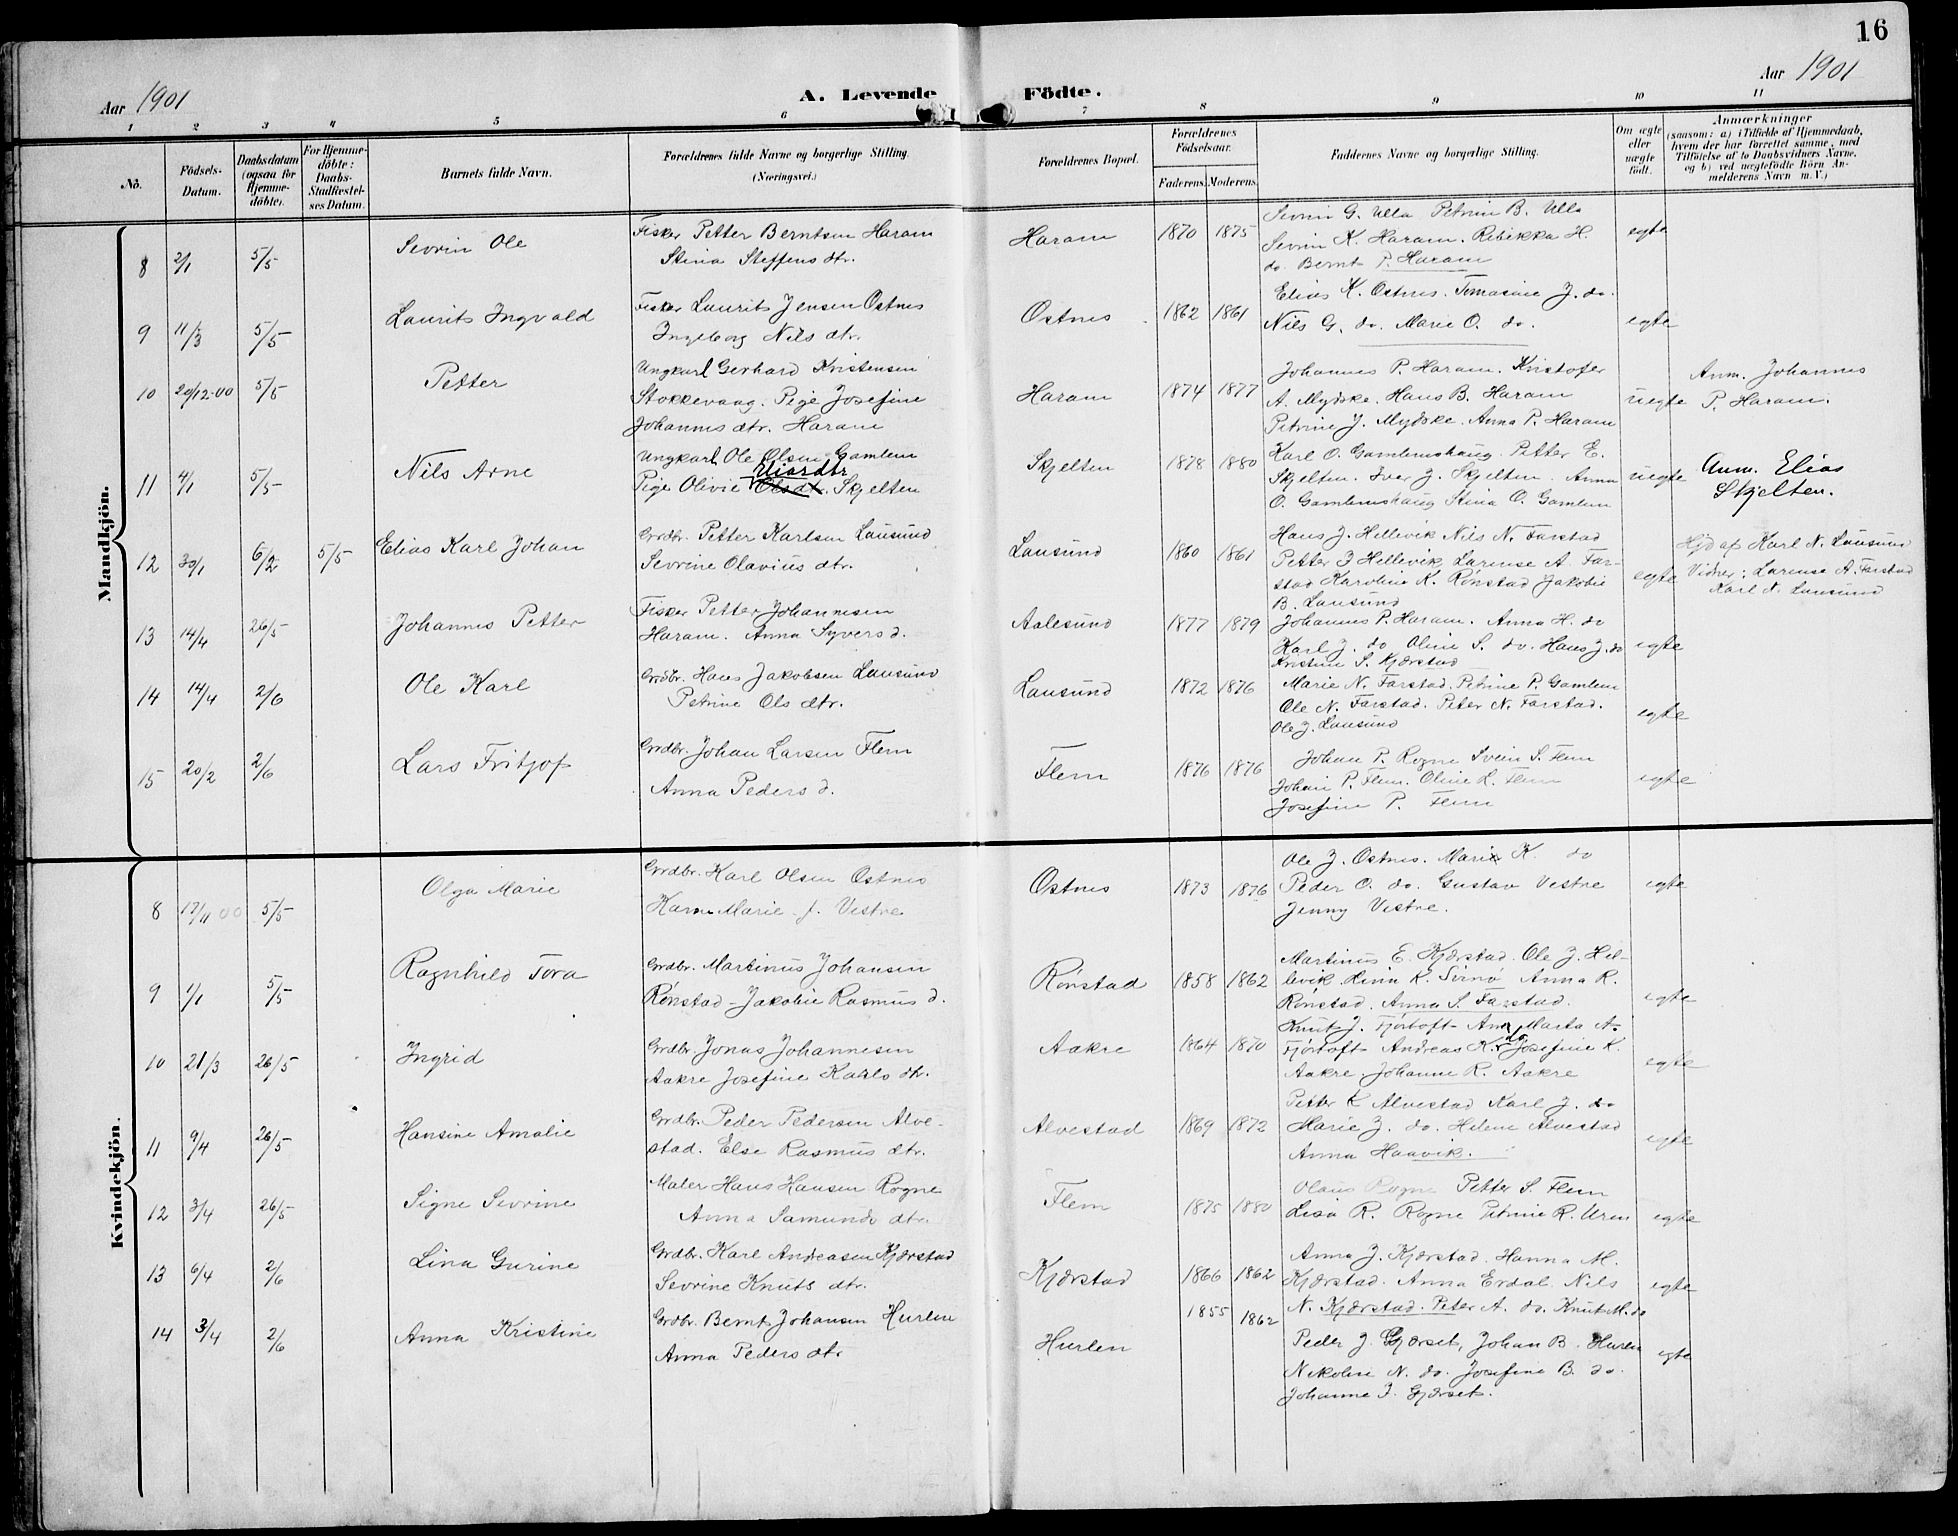 16
Aar 1901 A. Levende Födte. Aar 1901
1 2 3 4 5 6 7 8 9 10 11
No. Födsels-Datum. Daabsdatum (ogsaa for Hjemmedöbte). For Hjemmedöbte: Daabs-Stadfæstelses Datum. Barnets fulde Navn. Forældrenes fulde Navne og borgerlige Stilling. (Næringsvei.) Forældrenes Bopæl. Forældrenes Födselsaar. Faderens. Moderens. Faddernes Navne og borgerlige Stilling. Om ægte eller uægte födt. Anmærkninger (saasom: a) i Tilfælde af Hjemmedaab, hvem der har forrettet samme, med Tilföielse af to Daabsvidners Navne, og b) ved uægtefödte Börn Anmelderens Navn m. V.)
Mandkjön.
8 2/1 5/5 Sevrin Ole Fisker Petter Berntsen Haram
Stina Steffens dtr. Haram 1870 1875 Sevrin G. Ulla Petrine B. Ulla
Sevrin K. Haram. Rebikka H.
do. Bernt P. Haram egte
9 11/3 5/5 Laurits Ingvald Fisker Laurits Jensen Ostnes
Ingeborg Nils dtr. Ostnes 1862 1861 Elias K. Ostnes. Tomasine J. do.
Nils G. do. Marie O. do. egte
10 20/12-00 5/5 Petter Ungkarl Gerhard Kristensen
Stokkevaag. Pige Josefine
Johannes dtr. Haram Haram 1874 1877 Johannes P. Haram. Kristofer
A. Mydske. Hans B. Haram
Petrine J. Mydske. Anna P. Haram uegte Anm. Johannes
P. Haram.
11 4/1 5/5 Nils Arne Ungkarl Ole Olsen Gamlem
Pige Olivie Olsdtr. Eliasdtr Skjelten Skjelten 1878 1880 Karl O. Gamlemshaug. Petter E.
Skjelten. Iver J. Skjelten. Anna
O. Gamlemshaug Stina O. Gamlem uegte Anm. Elias
Skjelten.
12 30/1 6/2 5/5 Elias Karl Johan Grdbr. Petter Karlsen Lausund
Sevrine Olavius dtr. Lausund 1860 1861 Hans J. Hellevik Nils N. Farstad
Petter J Hellevik Larense A. Far-
stad Karoline K. Rønstad Jakobie
B. Lausund egte Hjd af Karl N. Lausund
Vidner: Larense A. Farstad
Karl N. Lausund
13 14/4 26/5 Johannes Petter Fisker Petter Johannesen
Haram. Anna Syvers d. Aalesund 1877 1879 Johannes P. Haram. Anna H. do
Karl J. do Oline S. do. Hans J. do
Kristine S. Kjærstad egte
14 14/4 2/6 Ole Karl Grdbr. Hans Jakobsen Lausund
Petrine Ols dtr. Lausund 1872 1876 Marie N. Farstad. Petrine P. Gamlem
Ole N. Farstad. Peter N. Farstad.
Ole J. Lausund egte
15 20/2 2/6 Lars Fritjof Grdbr. Johan Larsen Flem
Anna Peders d. Flem 1876 1876 Johan P. Rogne Svein S. Flem
Johan P. Flem. Oline L. Flem
Josefine P. Flem egte
Kvindekjön.
8 17/11 00 5/5 Olga Marie Grdbr. Karl Olsen Ostnes
Karen Marie J. Vestre Ostnes 1873 1876 Ole J. Ostnes. Marie K. do
Peder O. do. Gustav Vestre
Jenny Vestre. egte
9 1/1 5/5 Ragnhild Tora Grdbr. Martinus Johansen
Rønstad - Jakobie Rasmus d. Rønstad 1858 1862 Martinus E. Kjærstad. Ole J. Hel-
levik. Anna R.
Rønstad. Anna S. Farstad. egte
10 21/3 26/5 Ingrid Grdbr. Jonas Johannesen
Aakre Josefine Karls dtr. Aakre 1864 1870 Knut J. Fjørtoft Ane Marta A.
Fjørtoft Andreas K. do Josefine K.
Aakre. Johanne R. Aakre egte
11 9/4 26/5 Hansine Amalie Grdbr. Peder Pedersen Alve-
stad. Else Rasmus dtr. Alvestad 1869 1872 Petter K Alvestad Karl J. do
Marie J. do. Helene Alvestad
Anna Haavik. egte
12 3/4 26/5 Signe Sevrine Maler Hans Hansen Rogne
Anna Samunds dtr. Flem 1875 1880 Olaus Rogne Petter S. Flem
Lisa R. Rogne Petrine R. Uren egte
13 6/4 2/6 Lina Gurine Grdbr. Karl Andreasen Kjærstad
Sevrine Knuts dtr. Kjærstad 1866 1862 Anna J. Kjærstad. Hanna M.
Kjærstad. Anna Erdal. Nils
N. Kjærstad. Peter A. do. Knut M. do egte
14 3/4 2/6 Anna Kristine Grdbr. Bernt Johansen Hurlen
Anna Peders dtr Hurlen 1855 1862 Peder J. Gjærset, Johan B. Hurlen
Nikoline N. do. Josefine B. do.
Johanne J. Gjærset. egte